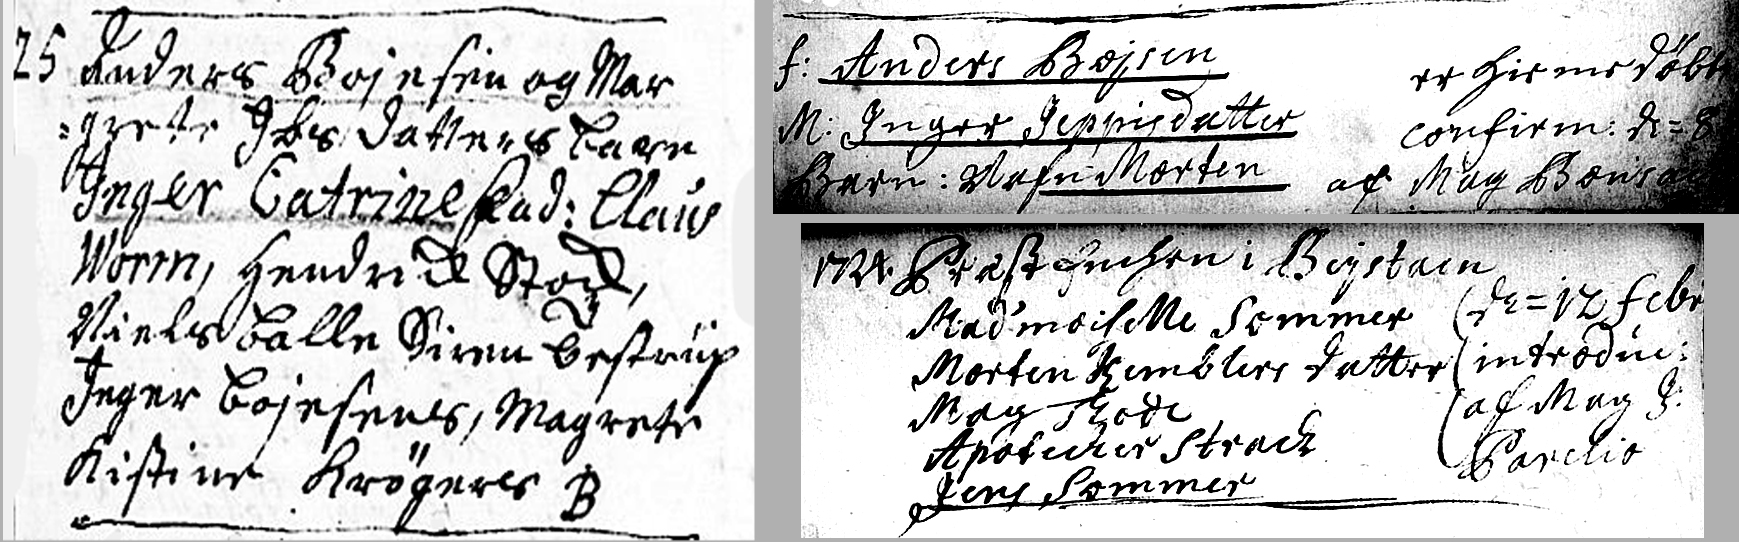 25 Anders Bojesen og Mar
=grete Ibs datters barn
Inger Catrine fad: Claus
Worm, Hendrick Stock,
Niels balle Siren bestrup
Inger bojesens, Magrete
Kistine Krögers B
f: Anders Bojsen
M: Inger Jeppisdatter
Barn: Morten
er hieme döbt
confirm: d=8
af Mag
1724 Præst i
Mad'moiselle Sommer
Morten Kemblers datter
Mag Thode
Apotecker Strack
Jens Sommer
(d=12 febr
(introduc:
(af Mag J: